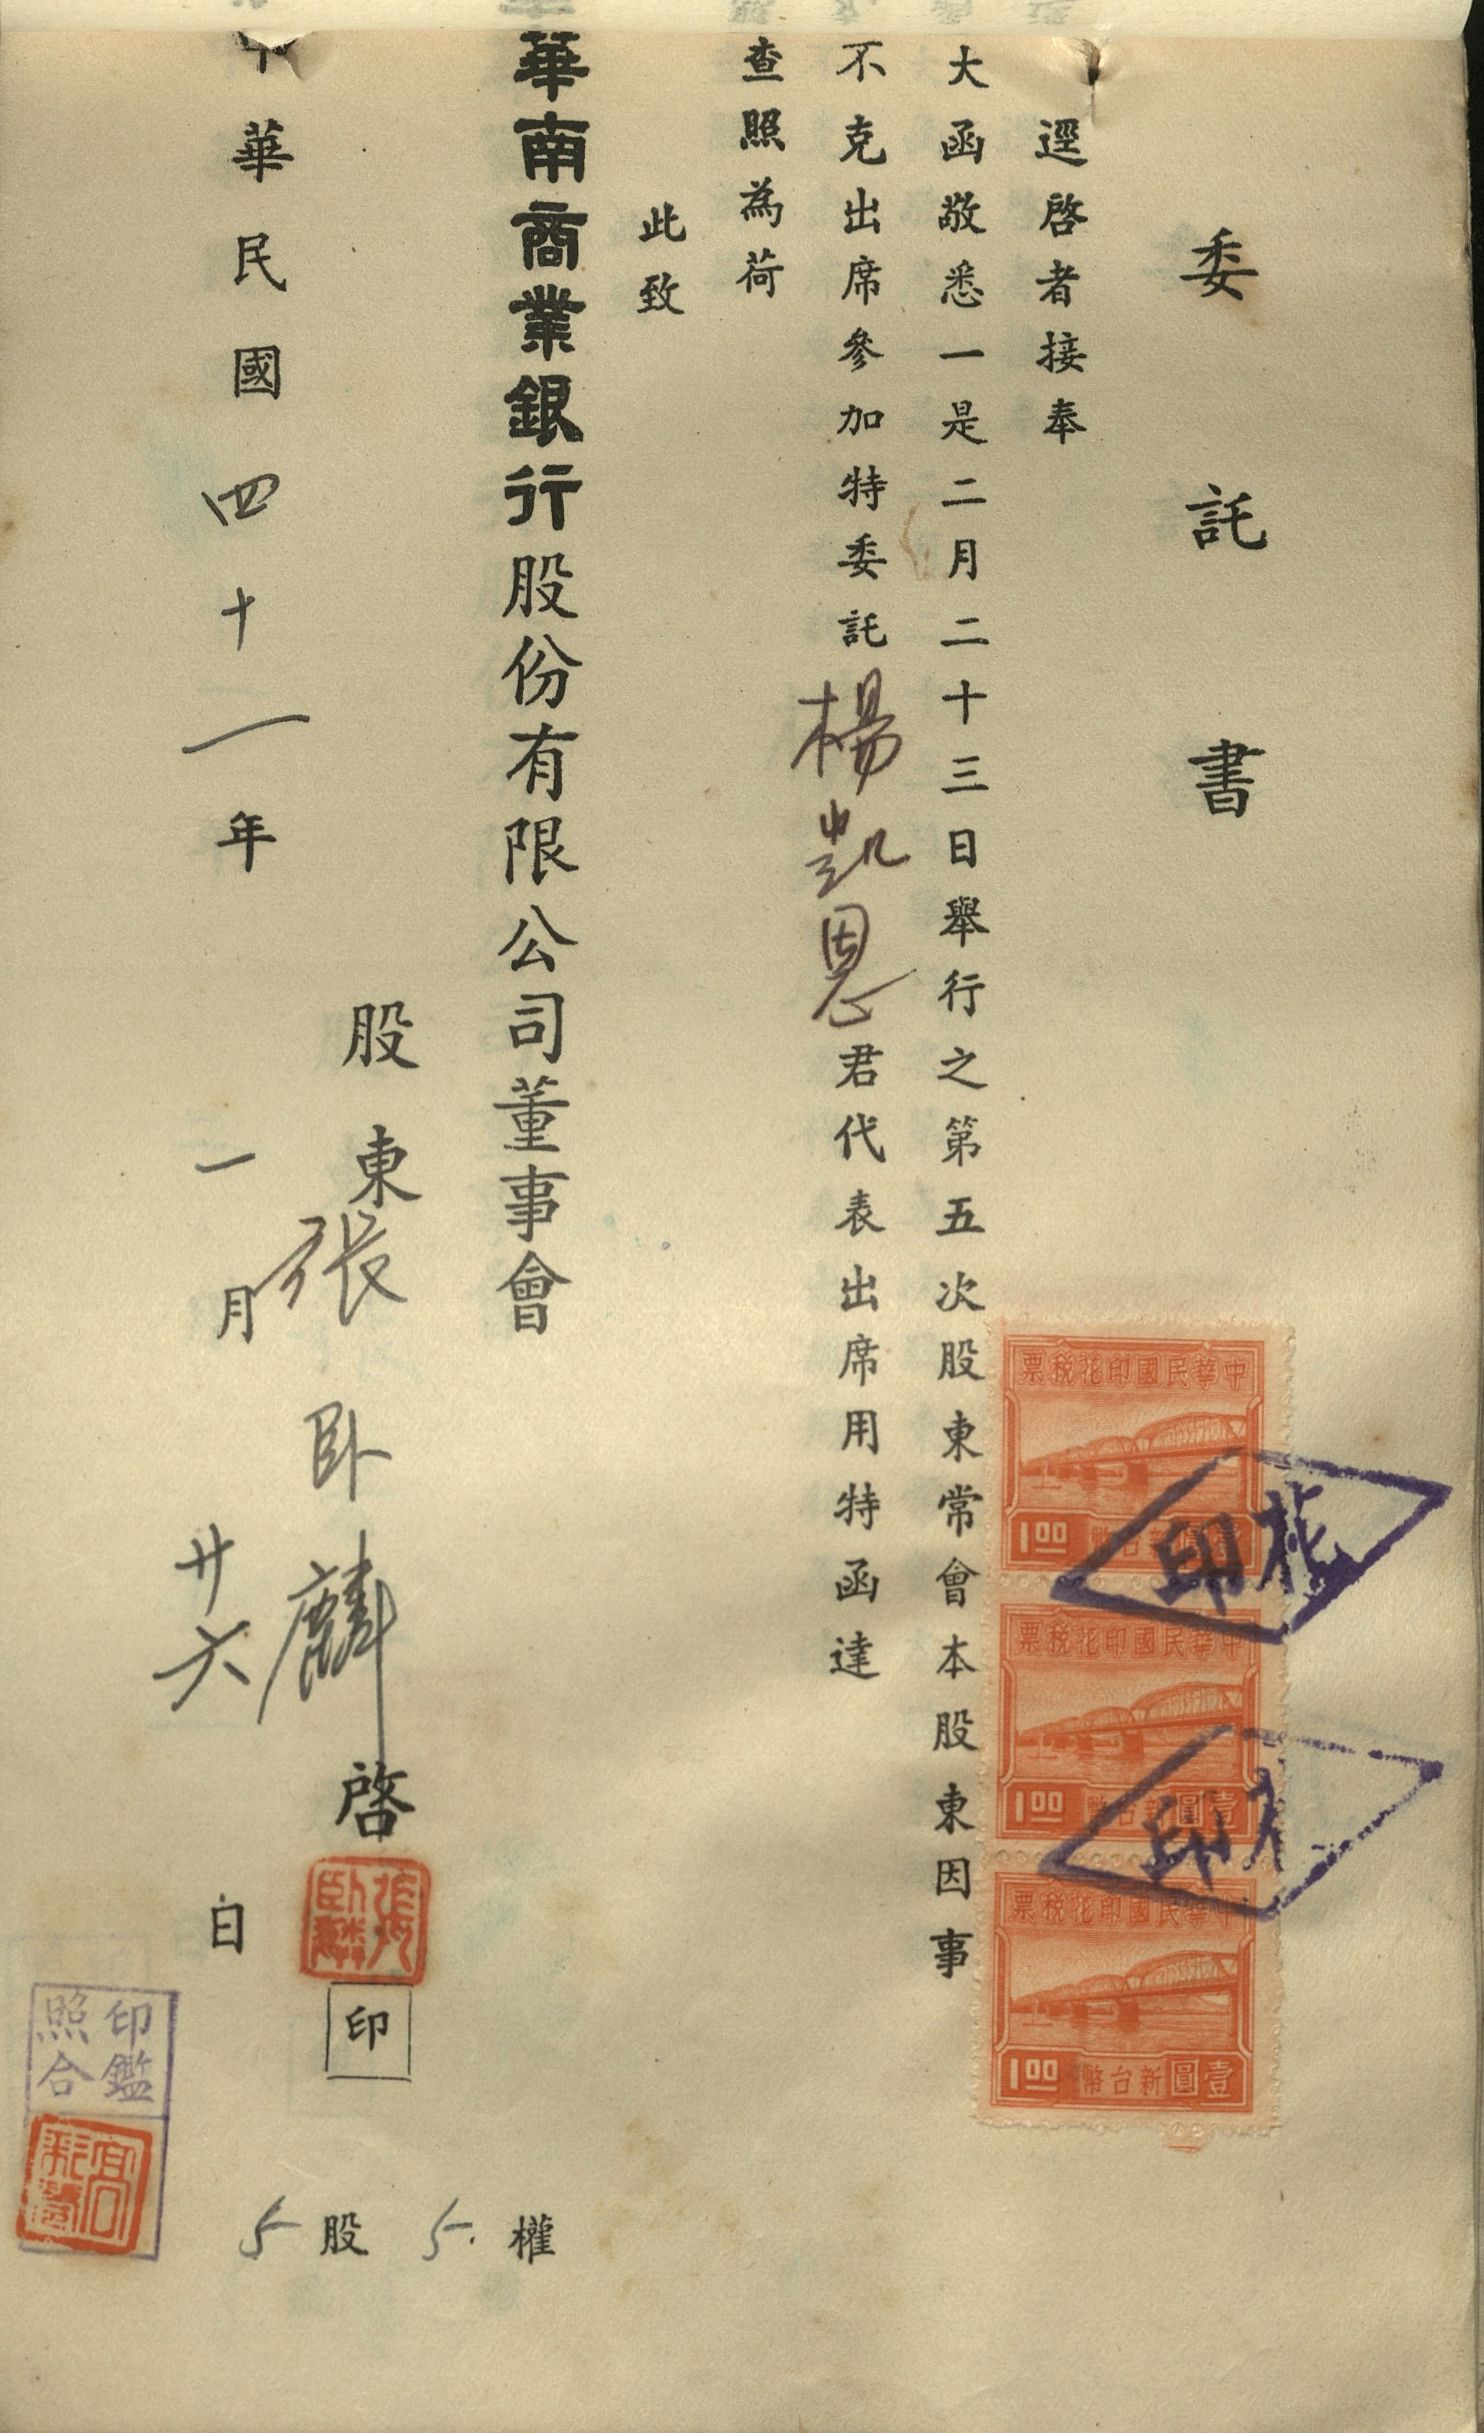 委託書
逕啓者接奉
大函敬悉一是二月二十三日舉行之第五次股東常會本股東因事
不克出席參加特委託楊凱恩君代表出席用特函達
查照為荷
此致
華南商業銀行股份有限公司董事會
股東張臥麟啓
印
中華民國四十一年一月廿六日
5股5.權
中華民國印花稅票
1.00
新台幣壹圓
中華民國印花稅票
1.00
新台幣壹圓
中華民國印花稅票
1.00
新台幣壹圓
花印
印
張臥麟
印鑑
照合